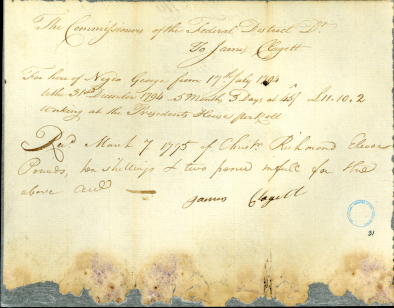 The Commissioners of the Federal District Dr.
To James Clagett
For hire of Negro George from 17th July 1794
to the 31st December 1794 5 Months 3 Days at 45/ £11.10.2
working at the Presidents House
Recd. March 7 1795 of Christr. Richmond Eleven
Pounds, ten shillings & two pence in full for the
above acct
James Clagett
21